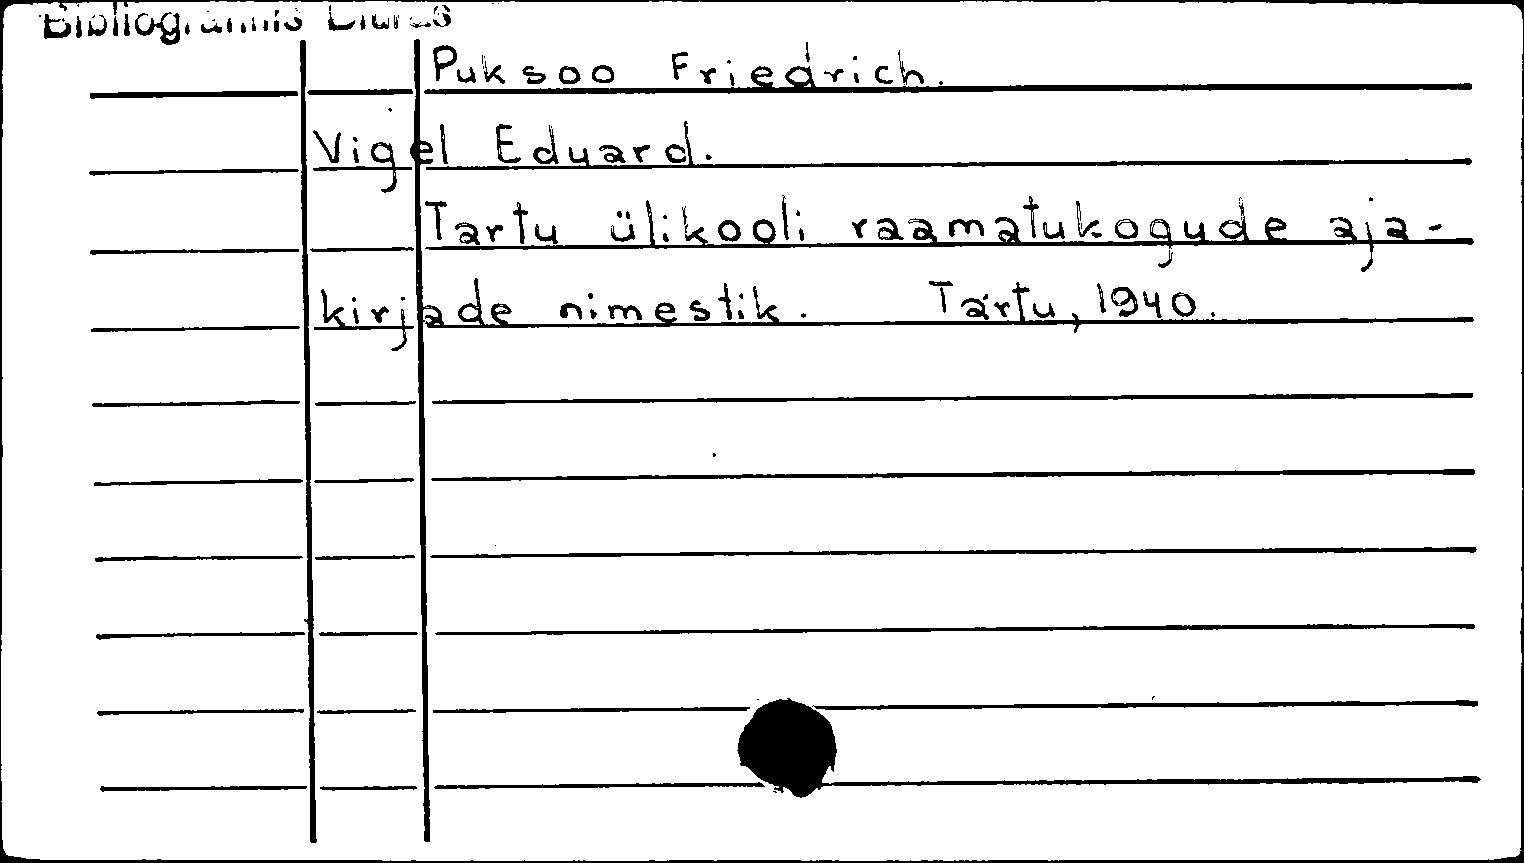 Puksoo Friedrich.
Vigel Eduard.
Tartu ülikooli raamatukogude aja-
kirjade nimestik. Tartu, 1940.